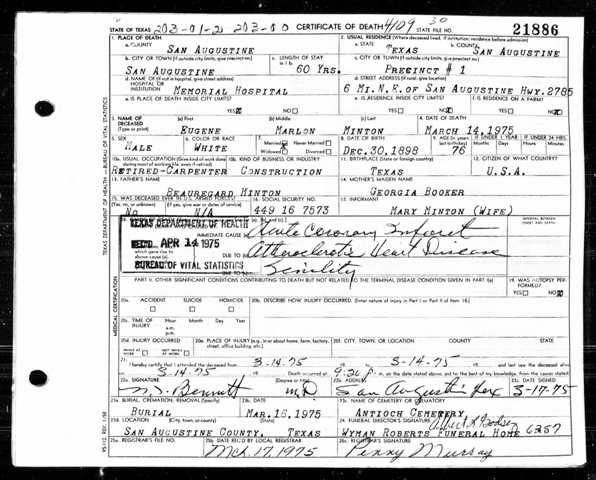 STATE OF TEXAS 203-01-2) 203-00 CERTIFICATE OF DEATH 4109 30 STATE FILE NO. 21886
1. PLACE OF DEATH 2. USUAL RESIDENCE (Where deceased lived. If institution: residence before admission)
a. COUNTY a. STATE b. COUNTY
SAN AUGUSTINE TEXAS SAN AUGUSTINE
b. CITY OR TOWN (If outside city limits, give precinct no.) c. LENGTH OF STAY in 1b c. CITY OR TOWN (If outside city limits, give precinct no.)
SAN AUGUSTINE 60 YRS. PRECINCT # 1
d. NAME OF (If not in hospital, give street address) HOSPITAL OR INSTITUTION d. STREET ADDRESS (If rural, give location)
MEMORIAL HOSPITAL 6 MI.N.E.OF SAN AUGUSTINE HWY.2785
e. IS PLACE OF DEATH INSIDE CITY LIMITS? e. IS RESIDENCE INSIDE CITY LIMITS? f. IS RESIDENCE ON A FARM?
YES NO YES NO YES NO
3. NAME OF DECEASED (Type or print) (a) First (b) Middle (c) Last 4. DATE OF DEATH
EUGENE MARLON MINTON MARCH 14,1975
5. SEX 6. COLOR OR RACE 7. Married Never Married Widowed Divorced 8. DATE OF BIRTH 9. AGE (In years last birthday) IF UNDER 1 YEAR IF UNDER 24 HRS.
Months Days Hours Minutes
MALE WHITE DEC.30,1898 76
10a. USUAL OCCUPATION (Give kind of work done during most of working life, even if retired) 10b. KIND OF BUSINESS OR INDUSTRY 11. BIRTHPLACE (State or foreign country) 12. CITIZEN OF WHAT COUNTRY?
RETIRED-CARPENTER CONSTRUCTION TEXAS U.S.A.
13. FATHER'S NAME 14. MOTHER'S MAIDEN NAME
BEAUREGARD MINTON GEORGIA BOOKER
15. WAS DECEASED EVER IN U.S. ARMED FORCES? (If yes, give war or dates of service) 16. SOCIAL SECURITY NO. 17. INFORMANT
NO N/A 449 16 7573 MARY MINTON (WIFE)
TEXAS DEPARTMENT OF HEALTH
REC'D APR 14 1975
BUREAU OF VITAL STATISTICS
INTERVAL BETWEEN ONSET AND DEATH
IMMEDIATE CAUSE Acute Coronary Infarct
which gave rise to above cause (a) DUE TO Atherosclerotic Heart Disease
DUE TO Senility
PART II. OTHER SIGNIFICANT CONDITIONS CONTRIBUTING TO DEATH BUT NOT RELATED TO THE TERMINAL DISEASE CONDITION GIVEN IN PART I(a) 19. WAS AUTOPSY PERFORMED?
YES NO
20a. ACCIDENT SUICIDE HOMICIDE 20b. DESCRIBE HOW INJURY OCCURRED. (Enter nature of injury in Part I or Part II of item 18.)
20c. TIME OF INJURY Hour Month Day Year
a.m.
p.m.
20d. INJURY OCCURRED 20e. PLACE OF INJURY (e.g., in or about home, farm, factory, street, office building, etc.) 20f. CITY, TOWN, OR LOCATION COUNTY STATE
WHILE AT WORK NOT WHILE AT WORK
21. I certify that I attended the deceased from 3-14-75 to 3-14-75 and last saw the deceased alive
on 3-14-75 Death occurred at 9:20 p. m. on the date stated above, and to the best of my knowledge, from the causes stated.
22a. SIGNATURE (Degree or title) 22b. ADDRESS 22c. DATE SIGNED
Bennett M.D. San Augustine, Tex 3-17-75
23a. BURIAL, CREMATION, REMOVAL (Specify) 23b. DATE 23c. NAME OF CEMETERY OR CREMATORY
BURIAL MAR.16,1975 ANTIOCH CEMETERY
23d. LOCATION (City, town, or county) (State) 24. FUNERAL DIRECTOR'S SIGNATURE
SAN AUGUSTINE COUNTY, TEXAS WYMAN ROBERTS FUNERAL HOME 6257
25a. REGISTRAR'S FILE NO. 25b. DATE REC'D BY LOCAL REGISTRAR 25c. REGISTRAR'S SIGNATURE
Mch. 17, 1975 Penny Murray
TEXAS DEPARTMENT OF HEALTH - BUREAU OF VITAL STATISTICS
MEDICAL CERTIFICATION
VS-112 REV. 1/58